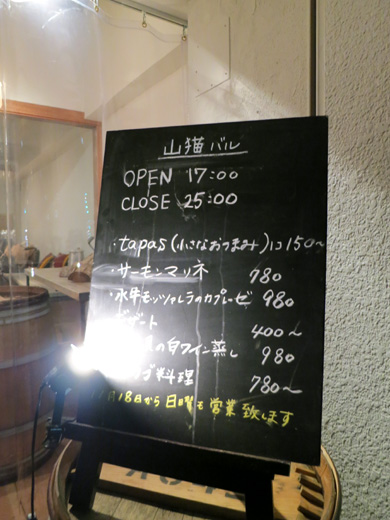 山猫バル
OPEN 17:00
CLOSE 25:00
・tapas(小さなおつまみ)1コ150〜
・サーモンマリネ 780
・水牛モッツァレラのカプレーゼ 980
デザート 400〜
の白ワイン蒸し 980
料理 780〜
月18日から日曜も営業致します